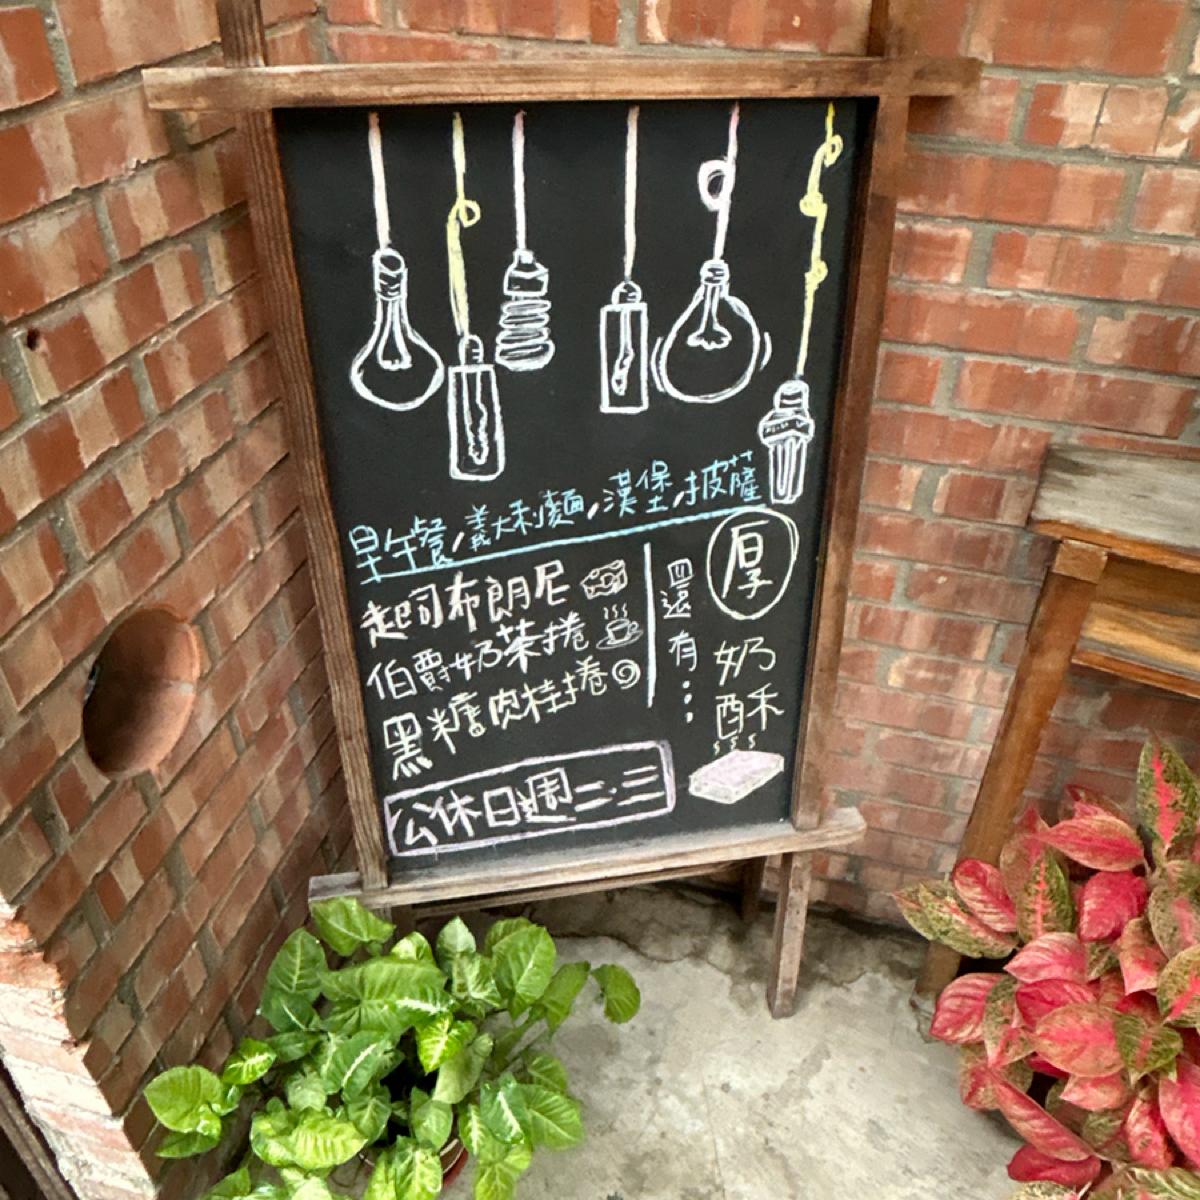 早午餐,義大利麵,漢堡,披薩
起司布朗尼
伯爵奶茶捲
黑糖肉桂捲
還有...
厚
奶酥
公休日週二.三